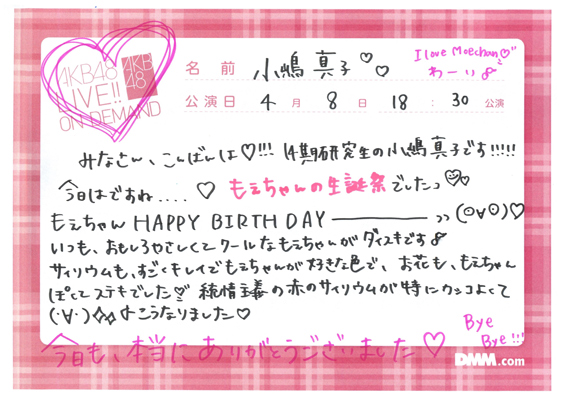 AKB48
LIVE!!
ON DEMAND
AKB
48
名前 小嶋 真子♡♡
I love Moechan♡
わーい
公演日 4月8日 18:30公演
みなさん、こんばんは♡!!! 14期研究生の小嶋真子です!!!!!
今日はですね....♡ もえちゃんの生誕祭でしたっ
もえちゃん HAPPY BIRTHDAY———>> (ʘ∀ʘ)♡
いつも、おもしろやさしくてクールなもえちゃんがダイスキです
サイリウムも、すごくキレイでもえちゃんが好きな色で、お花も、もえちゃん
ぽくてステキでした♡ 純情主義の赤のサイリウムが特にカッコよくて
(・∀・)
こうなりました♡
今日も、本当にありがとうございました♡
Bye
Bye!!!
DMM.com